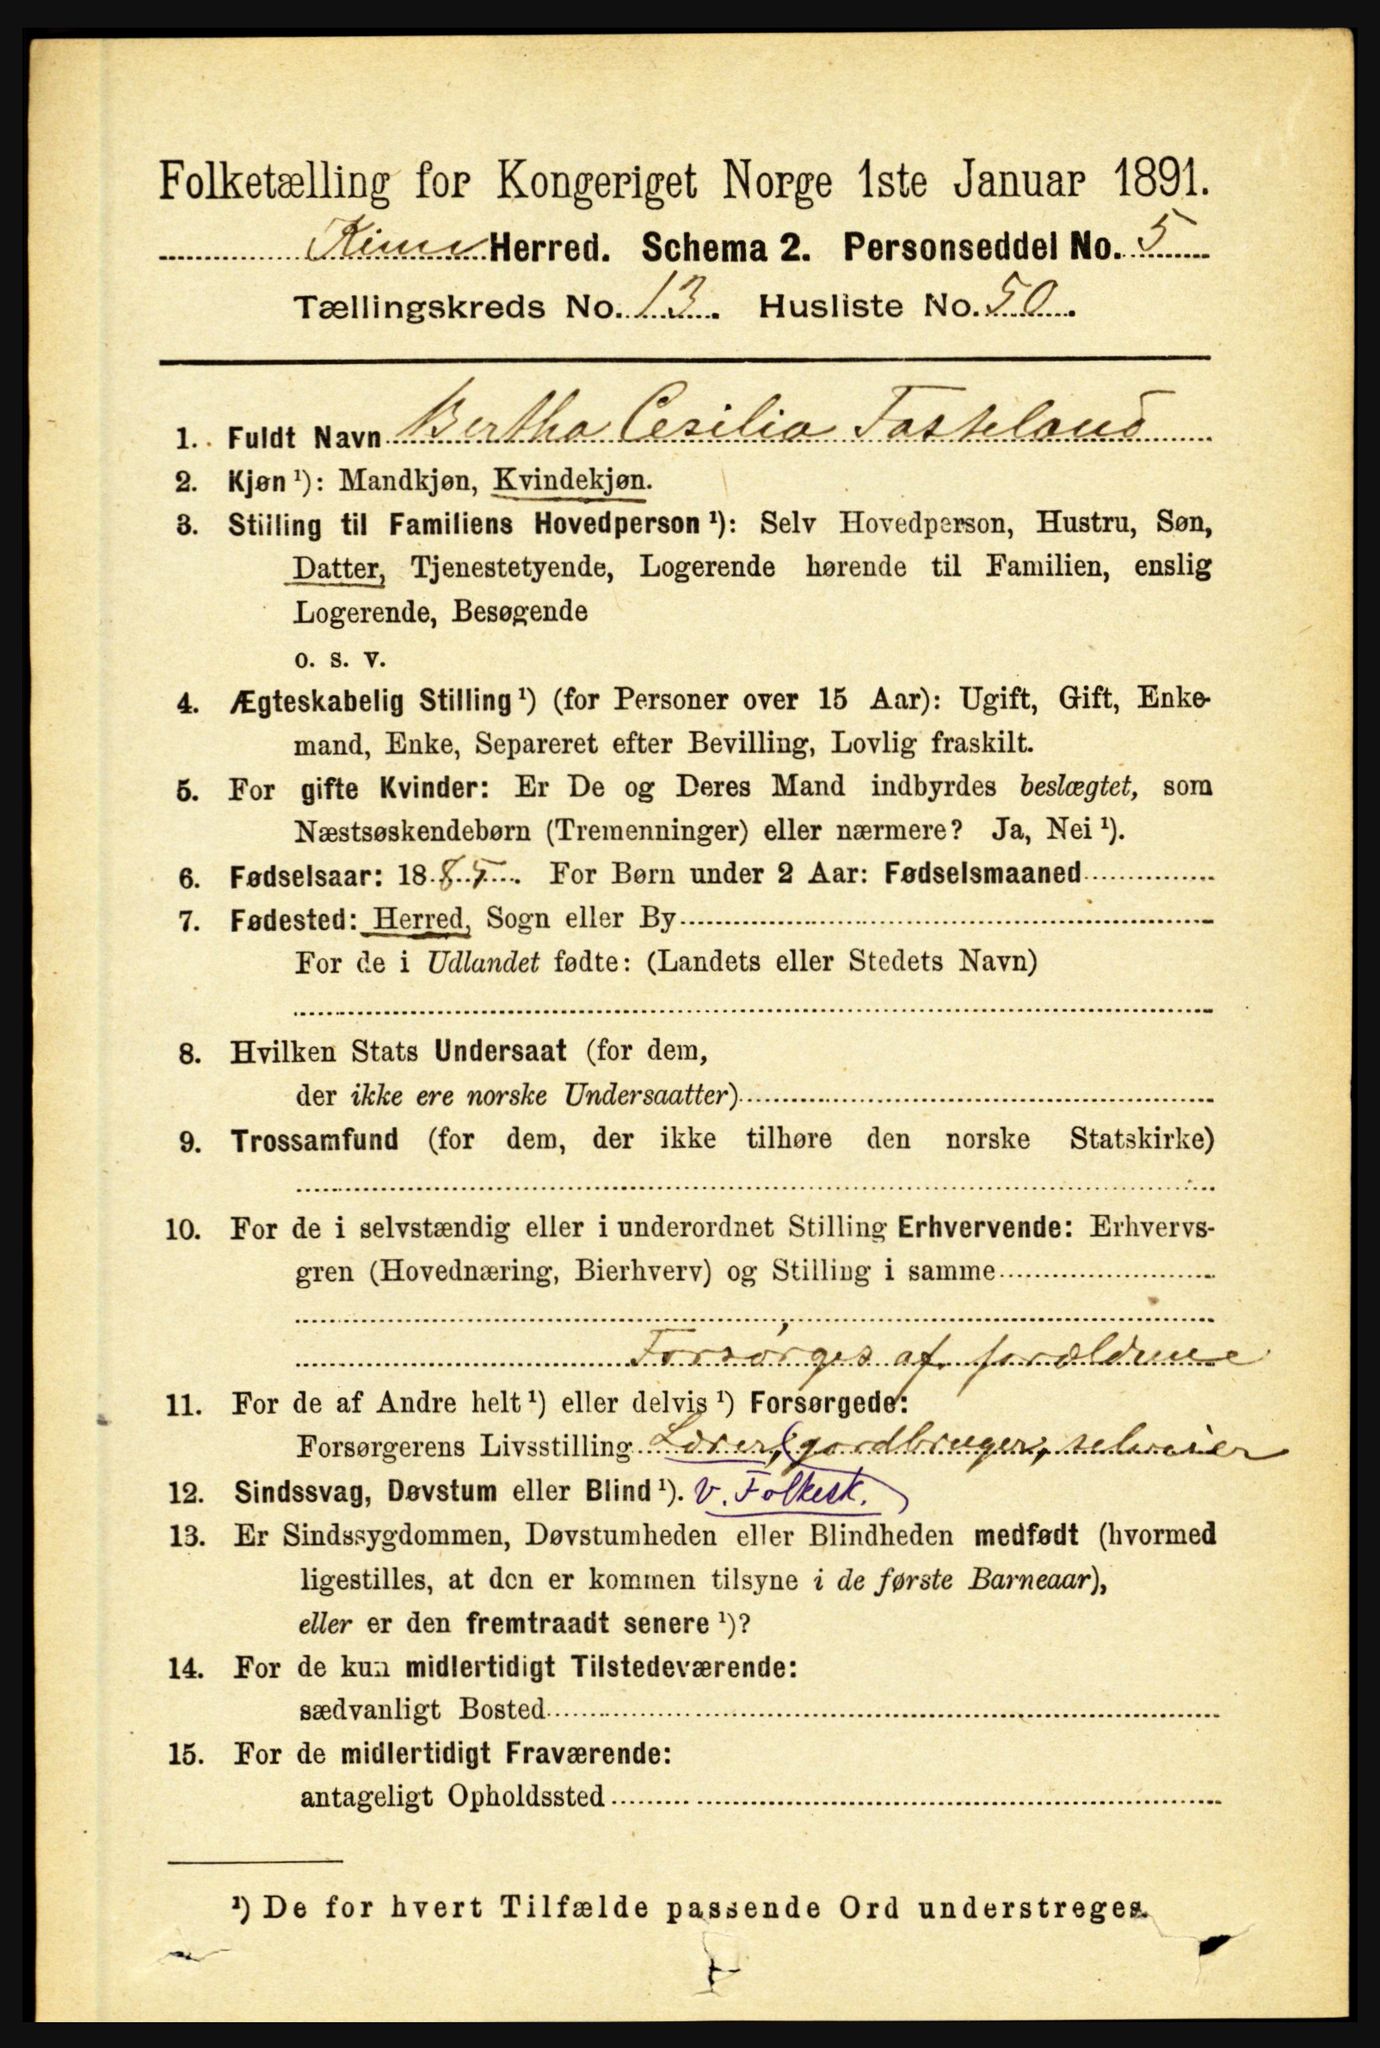 Folketælling for Kongeriget Norge 1ste Januar 1891.
Kinn Herred. Schema 2. Personseddel No. 5
Tællingskreds No. 13. Husliste No. 50.
1. Fuldt Navn Bertha Cesilia Fasteland
2. Kjøn ¹): Mandkjøn, Kvindekjøn.
3. Stilling til Familiens Hovedperson ¹): Selv Hovedperson, Hustru, Søn,
Datter, Tjenestetyende, Logerende hørende til Familien, enslig
Logerende, Besøgende
o. s. v.
4. Ægteskabelig Stilling ¹) (for Personer over 15 Aar): Ugift, Gift, Enke-
mand, Enke, Separeret efter Bevilling, Lovlig fraskilt.
5. For gifte Kvinder: Er De og Deres Mand indbyrdes beslægtet, som
Næstsøskendebørn (Tremenninger) eller nærmere? Ja, Nei ¹).
6. Fødselsaar: 1885. For Børn under 2 Aar: Fødselsmaaned
7. Fødested: Herred, Sogn eller By
For de i Udlandet fødte: (Landets eller Stedets Navn)
8. Hvilken Stats Undersaat (for dem,
der ikke ere norske Undersaatter)
9. Trossamfund (for dem, der ikke tilhøre den norske Statskirke)
10. For de i selvstændig eller i underordnet Stilling Erhvervende: Erhvervs-
gren (Hovednæring, Bierhverv) og Stilling i samme
Forsørges af forældrene
11. For de af Andre helt ¹) eller delvis ¹) Forsørgede:
Forsørgerens Livsstilling Lærer, gardbruger, selveier
12. Sindssvag, Døvstum eller Blind ¹). v. Folkesk.
13. Er Sindssygdommen, Døvstumheden eller Blindheden medfødt (hvormed
ligestilles, at den er kommen tilsyne i de første Barneaar),
eller er den fremtraadt senere ¹)?
14. For de kun midlertidigt Tilstedeværende:
sædvanligt Bosted
15. For de midlertidigt Fraværende:
antageligt Opholdssted
¹) De for hvert Tilfælde passende Ord understreges.